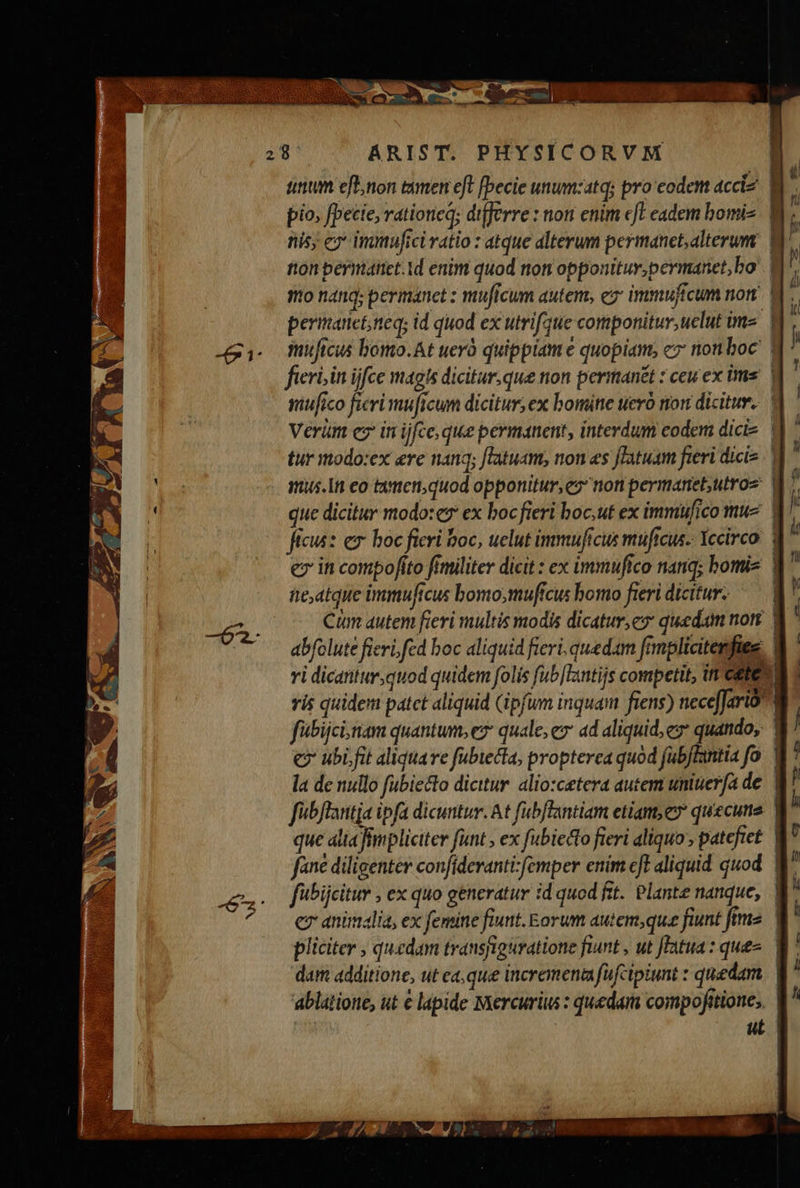 28 ARIST. PHYSICORVM
unum eſt,non tamen eſt ſpecie unum:atq; pro eodem acci=
pio, ſpecie, rationeq; differre : non enim eſt eadem homi=
nis, & immuſici ratio : atque alterum permanet,alterum
non permanet.Id enim quod non opponitur,permanet,ho
mo nanq; permanet : muſicum autem, & immuſicum non
permanet,neq; id quod ex utriſque componitur,uelut im=
61· muſicus homo.At uerò quippiam è quopiam, & non hoc
fieri,in ijſce magis dicitur,quæ non permanét : ceu ex im=
muſico fieri muſicum dicitur,ex homine uerò non dicitur.
Verùm & in ijſce,quæ permanent, interdum eodem dici=
tur modo:ex ære nanq; ſtatuam, non æs ſtatuam fieri dici=
mus.In eo tamen,quod opponitur,& non permanet,utro=
que dicitur modo:& ex hoc fieri hoc,ut ex immuſico mu=
ſicus: & hoc fieri hoc, uelut immuſicus muſicus. Iccirco
& in compoſito ſimiliter dicit : ex immuſico nanq; homi=
ne,atque immuſicus homo,muſicus homo fieri dicitur.
62· Cùm autem fieri multis modis dicatur,& quædam non
abſolute fieri,ſed hoc aliquid fieri.quædam ſimpliciter fie=
ri dicantur,quod quidem ſolis ſubſtantijs competit, in cete=
ris quidem patet aliquid (ipſum inquam fiens) neceſſariò
ſubijci,nam quantum,& quale,& ad aliquid,& quando,
& ubi,fit aliqua re ſubiecta, propterea quòd ſubſtantia ſo
la de nullo ſubiecto dicitur alio:cætera autem uniuerſa de
ſubſtantia ipſa dicuntur. At ſubſtantiam etiam,& quæcun=
que alia ſimpliciter ſunt , ex ſubiecto fieri aliquo , patefiet
ſanè diligenter conſideranti:ſemper enim eſt aliquid quod
63· ſubijcitur , ex quo generatur id quod fit. Plantæ nanque,
& animalia, ex ſemine fiunt.Eorum autem,quæ fiunt ſim=
pliciter , quædam transfiguratione fiunt , ut ſtatua : quæ=
dam additione, ut ea,quæ incrementa ſuſcipiunt : quædam
ablatione, ut è lapide Mercurius : quædam compoſitione,
ut